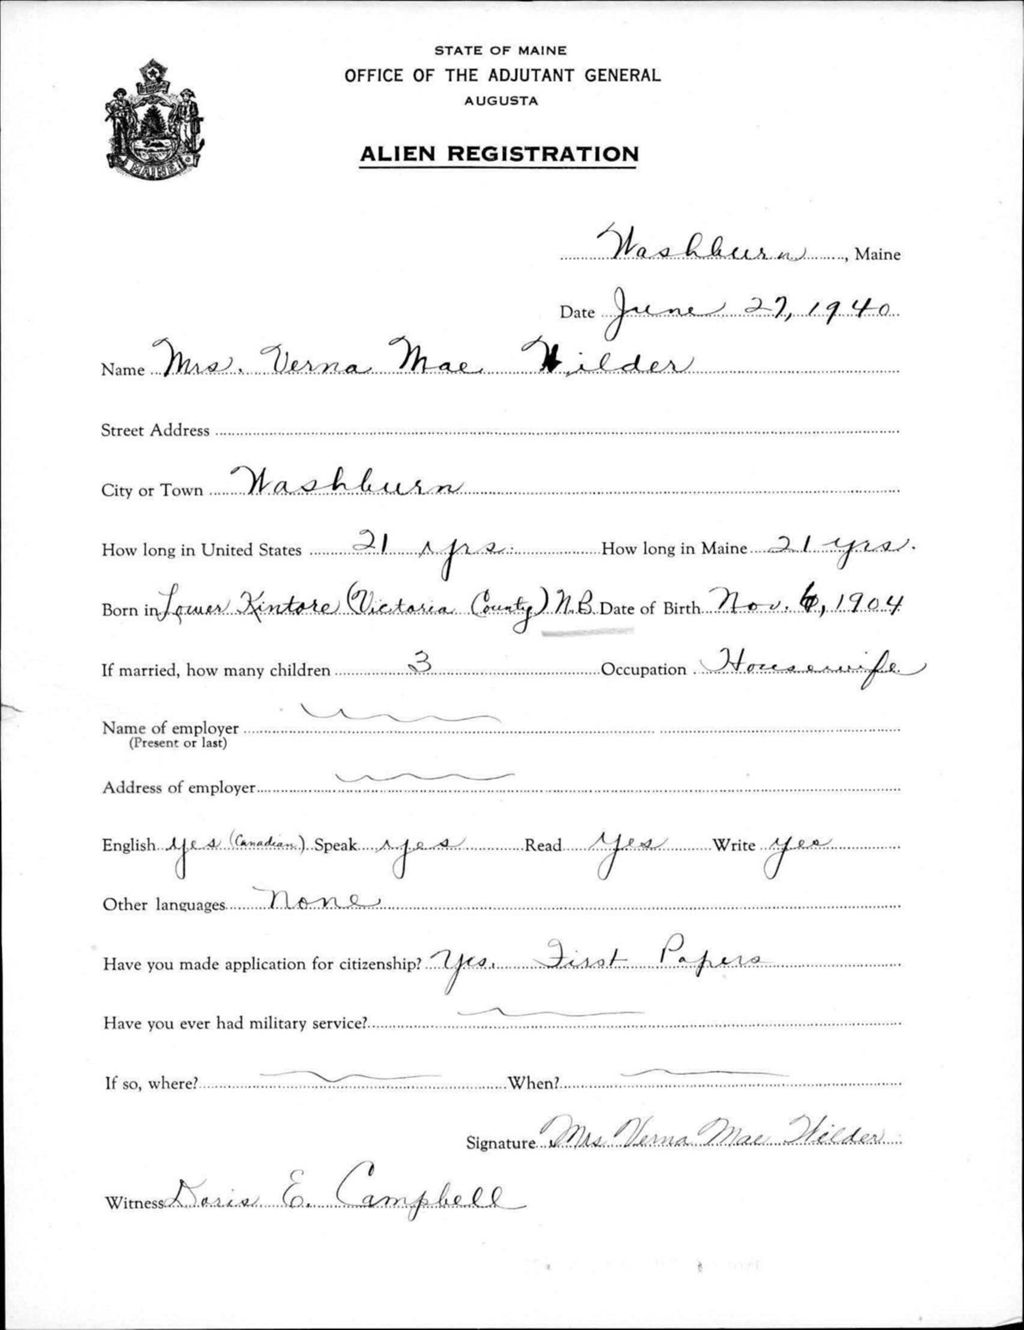 STATE OF MAINE
OFFICE OF THE ADJUTANT GENERAL
AUGUSTA
ALIEN REGISTRATION
MAINE
Washburn, Maine
Date June 27, 1940
Name Mrs. Verna Mae Wilder
Street Address
City or Town Washburn
How long in United States 21 yrs. How long in Maine 21 yrs.
Born in Lower Kintore (Victoria County) N.B. Date of Birth Nov. 6, 1904
If married, how many children 3 Occupation Housewife
Name of employer
(Present or last)
Address of employer
English yes (Canadian) Speak yes Read Yes Write yes
Other languages None
Have you made application for citizenship? Yes. First Papers
Have you ever had military service?
If so, where? When?
Signature Mrs Verna Mae Wilder
Witness Doris E. Campbell